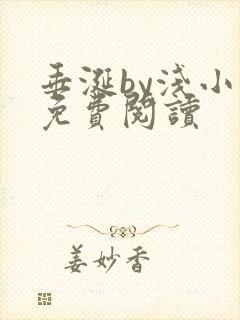 垂涎by浅小
免費閱讀
姜妙香